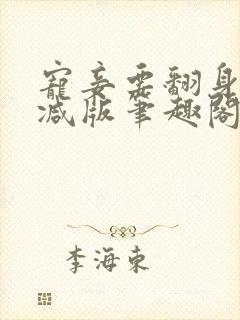 寵妾要翻身
减版筆趣閣
李海東